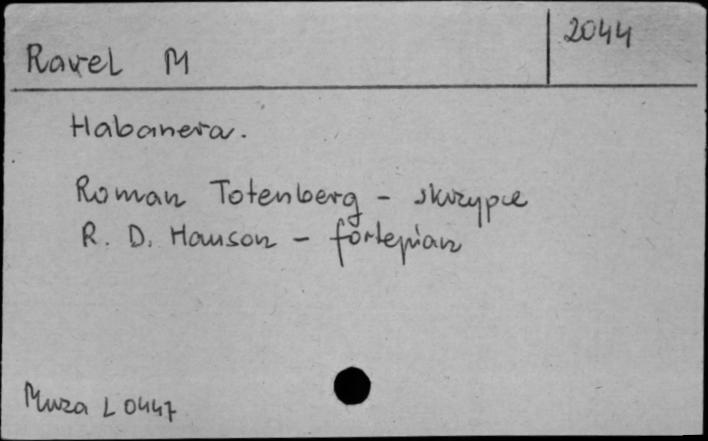 Ravel M
2044
Habanera.
Roman Totenberg - skrzypce
R. D. Hanson - fortepian
Muza L 0447